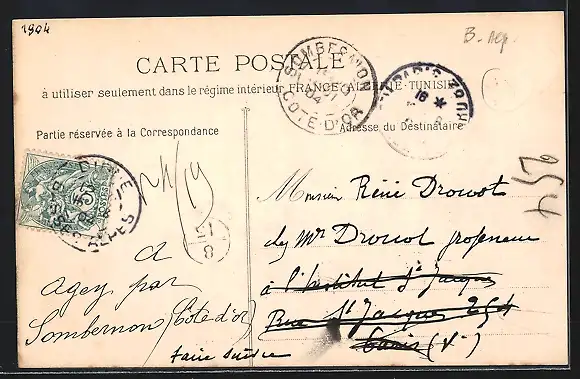 1904
B. rep.
CARTE POSTALE
à utiliser seulement dans le régime intérieur FRANCE · ALGÉRIE · TUNISIE
Partie réservée à la Correspondance
Adresse du Destinataire
SOMBERNON
COTE-D'OR
DIGNE
ALPES
PARIS
POSTES
Monsieur René Drouot
chez Mr Drouot professeur
à l'Institut St Jacques
Rue St Jacques 254
Paris (Ve)
à
agey par
Sombernon (Côte d'or)
faire suivre